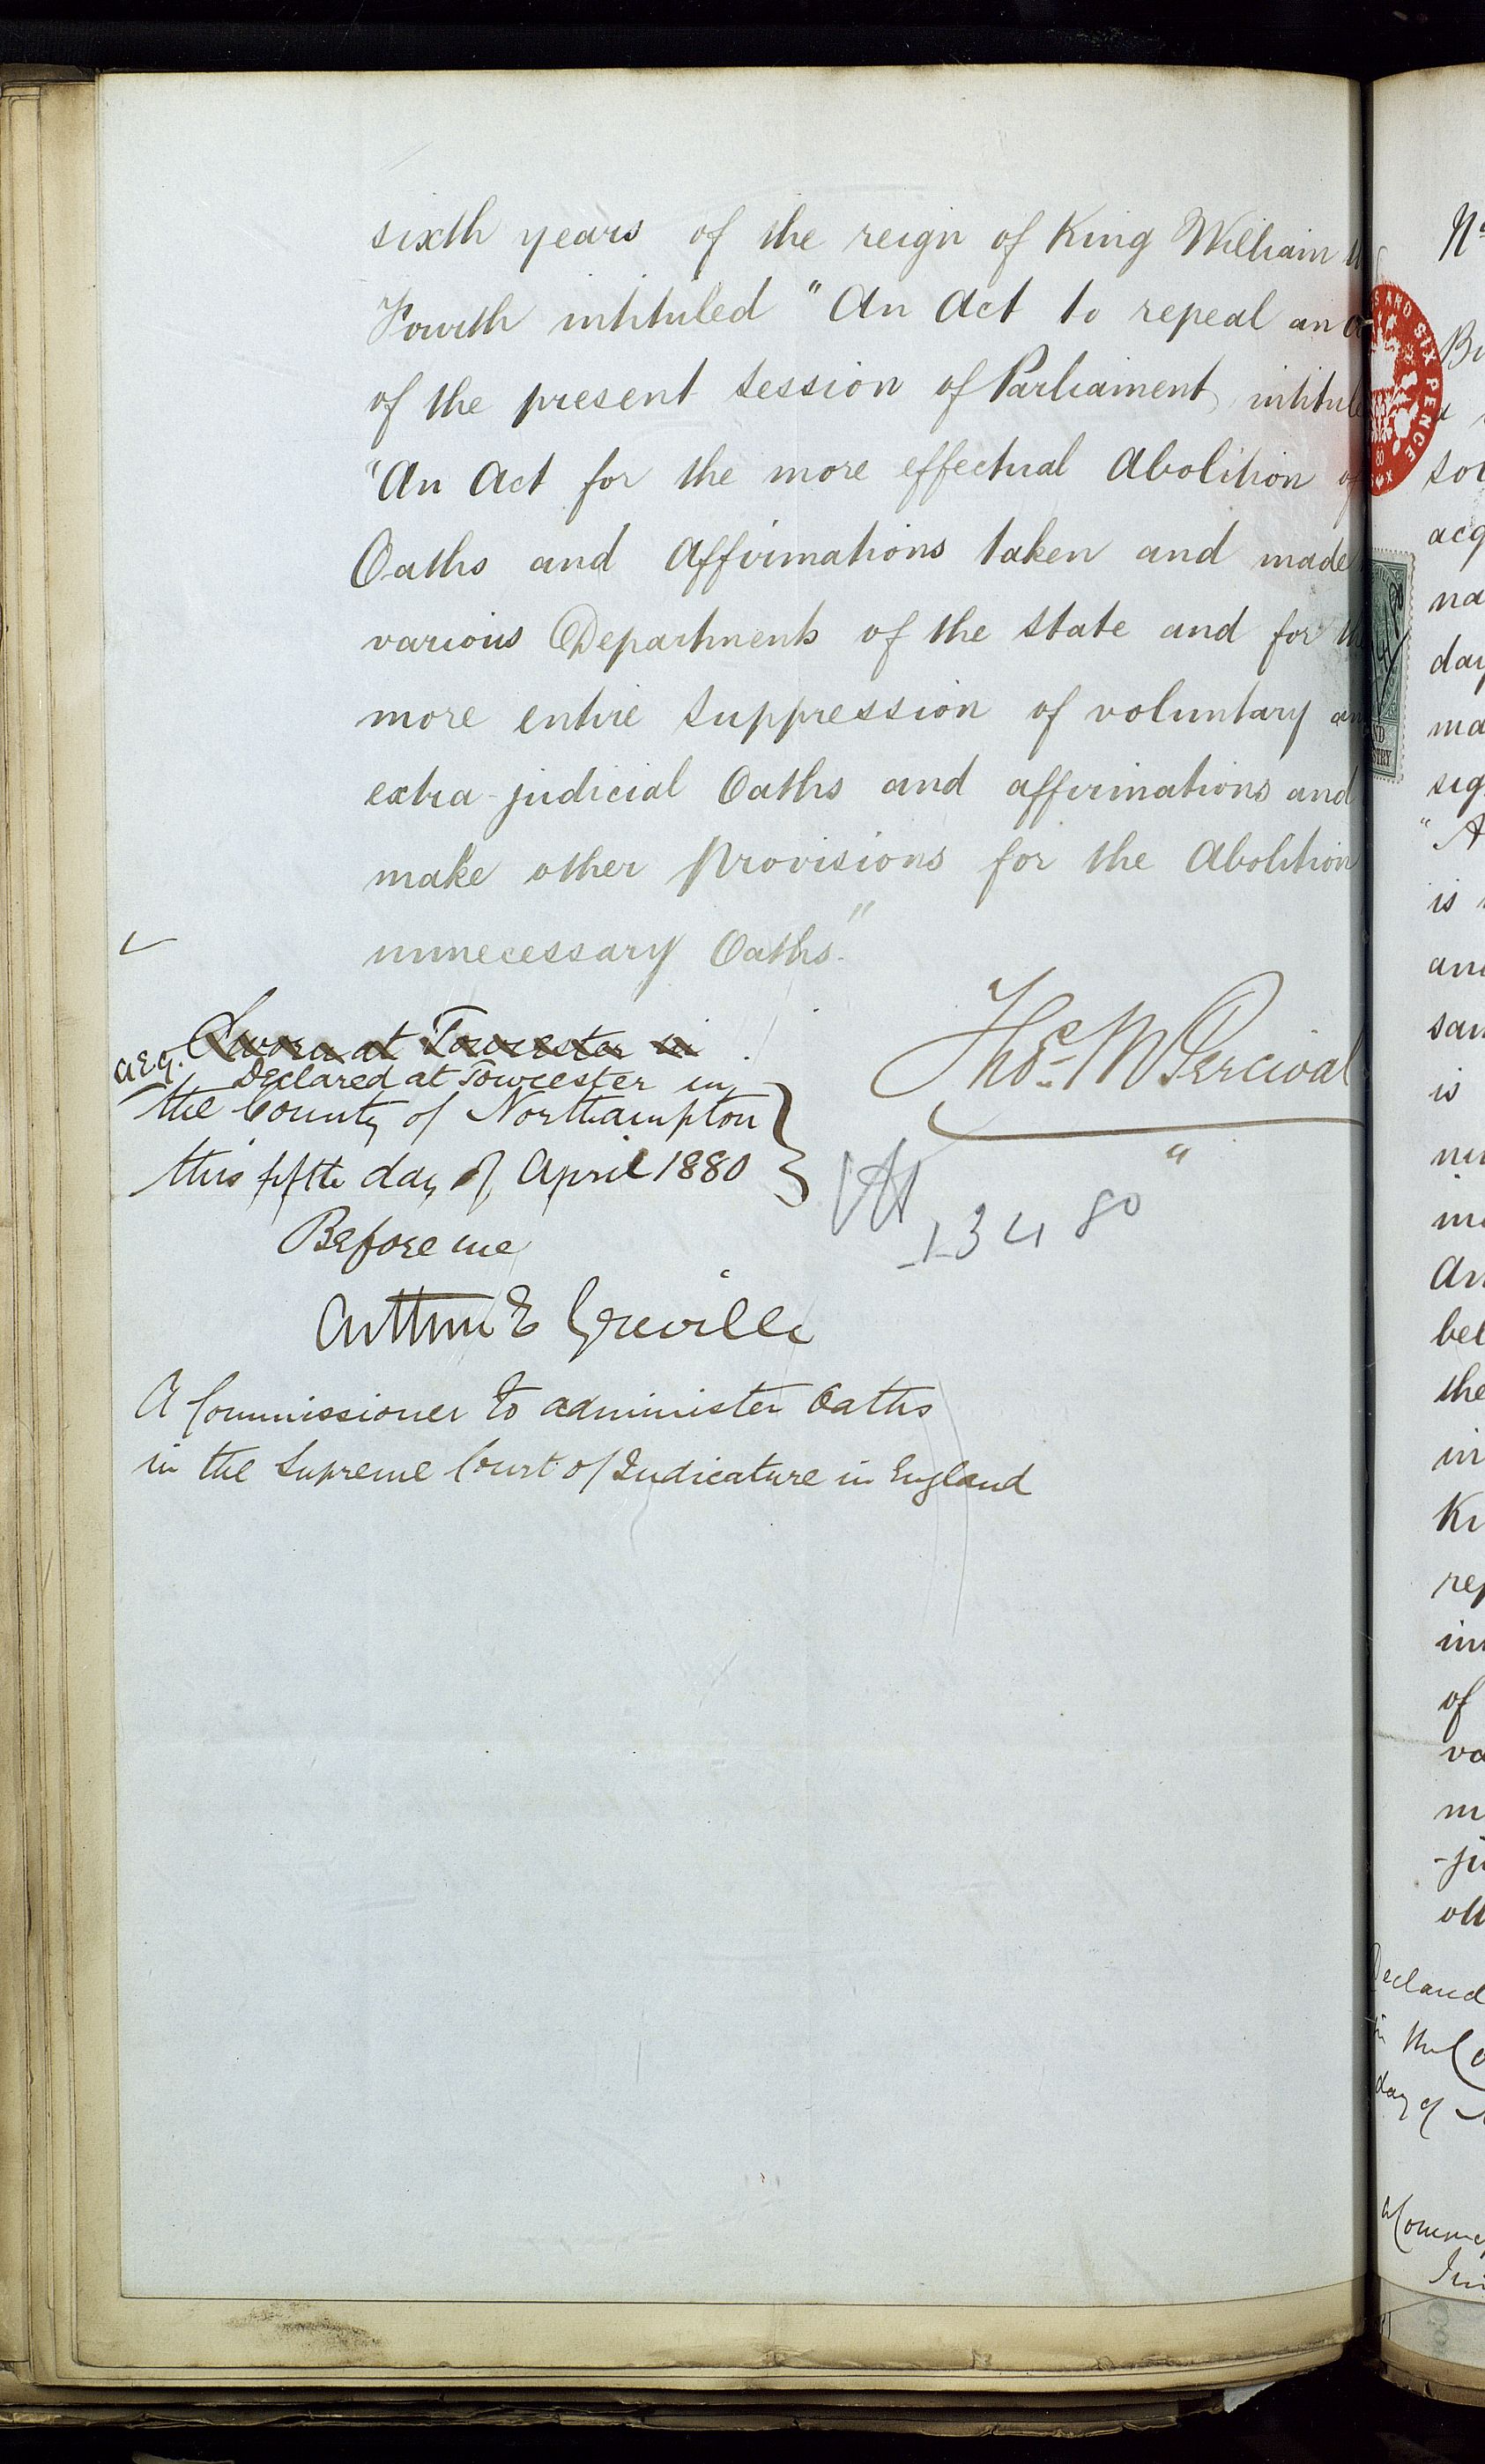 sixth years of the reign of King William
Fourth intituled "An Act to repeal an
of the present Session of Parliament intitule
"An Act for the more effectual Abolition of
Oaths and Affirmations taken and made
various Departments of the State and for the
more entire Suppression of voluntary an
extra-judicial Oaths and affirmations and
make other Provisions for the Abolition
unnecessary Oaths."
Sworn at Towcester in
A.E.G. Declared at Towcester in
the County of Northampton
this fifth day of April 1880
Before me
Arthur E Greville
A Commissioner to administer Oaths
in the Supreme Court of Judicature in England
Thos. M Percival
13 4 80
S AND SIX PENCE
Bu
sol
acq
na
day
ma
sig
"A
is
and
sam
is
An
bel
the
in
Ki
rep
of
va
m
-ju
oth
Declared
in the Co
day of